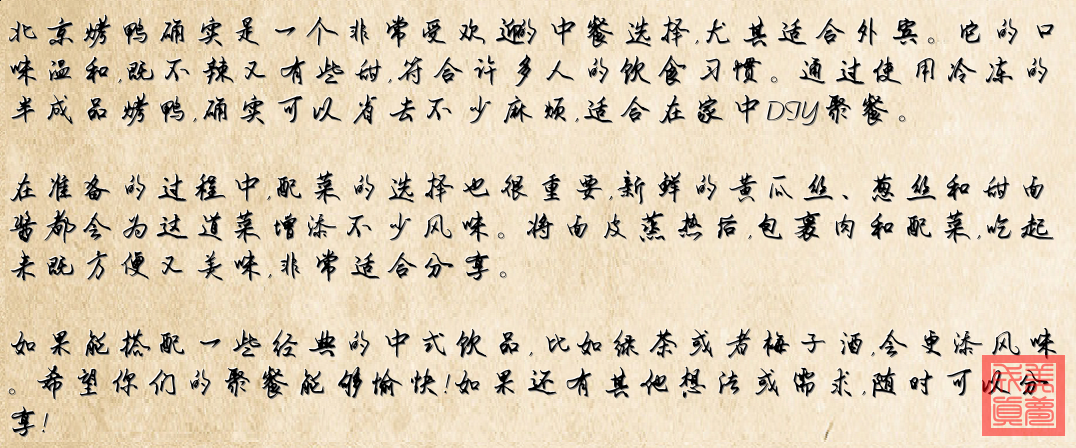 北京烤鸭确实是一个非常受欢迎的中餐选择,尤其适合外宾。它的口
味温和,既不辣又有些甜,符合许多人的饮食习惯。通过使用冷冻的
半成品烤鸭,确实可以省去不少麻烦,适合在家中DIY聚餐。
在准备的过程中,配菜的选择也很重要,新鲜的黄瓜丝、葱丝和甜面
酱都会为这道菜增添不少风味。将面皮蒸热后,包裹肉和配菜,吃起
来既方便又美味,非常适合分享。
如果能搭配一些经典的中式饮品,比如绿茶或者梅子酒,会更添风味
。希望你们的聚餐能够愉快!如果还有其他想法或需求,随时可以分
享!